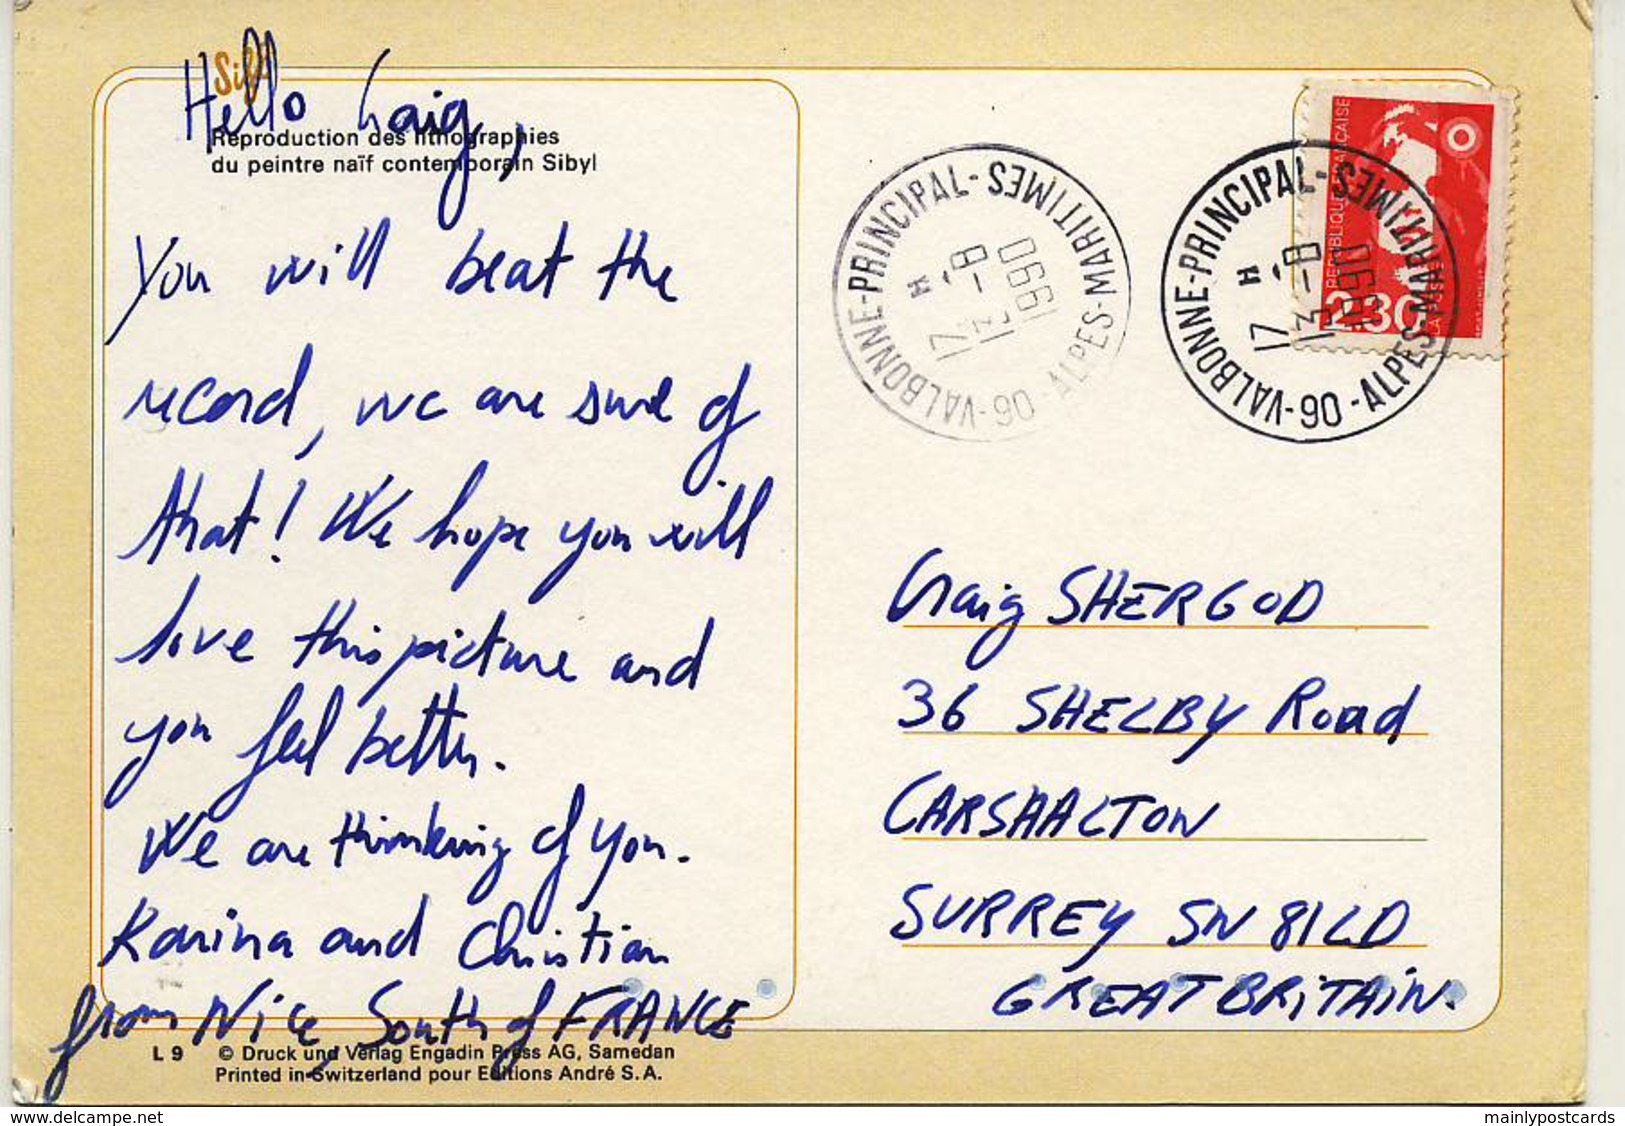 Hello Craig,
Reproduction des lithographies
du peintre naïf contemporain Sibyl
You will beat the
record, we are sure of
that! We hope you will
love this picture and
you feel better.
We are thinking of you.
Karina and Christian
from Nice, South of FRANCE
L 9 © Druck und Verlag Engadin Press AG, Samedan
Printed in Switzerland pour Editions André S.A.
VALBONNE-PRINCIPAL-ALPES-MARITIMES
06
17 H
13-8
1990
VALBONNE-PRINCIPAL-ALPES-MARITIMES
06
17 H
13-8
1990
REPUBLIQUE FRANÇAISE
2.30
LA POSTE
Craig SHERGOD
36 SHELBY Road
CARSHALTON
SURREY SN 81LD
GREAT BRITAIN.
delcampe.net
mainlypostcards